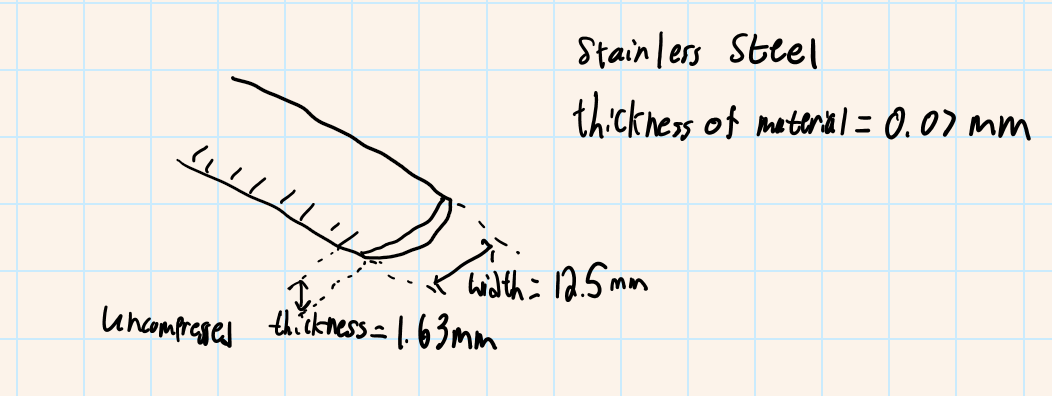 Stainless Steel
thickness of material = 0.07 mm
width = 12.5 mm
Uncompressed thickness = 1.63mm